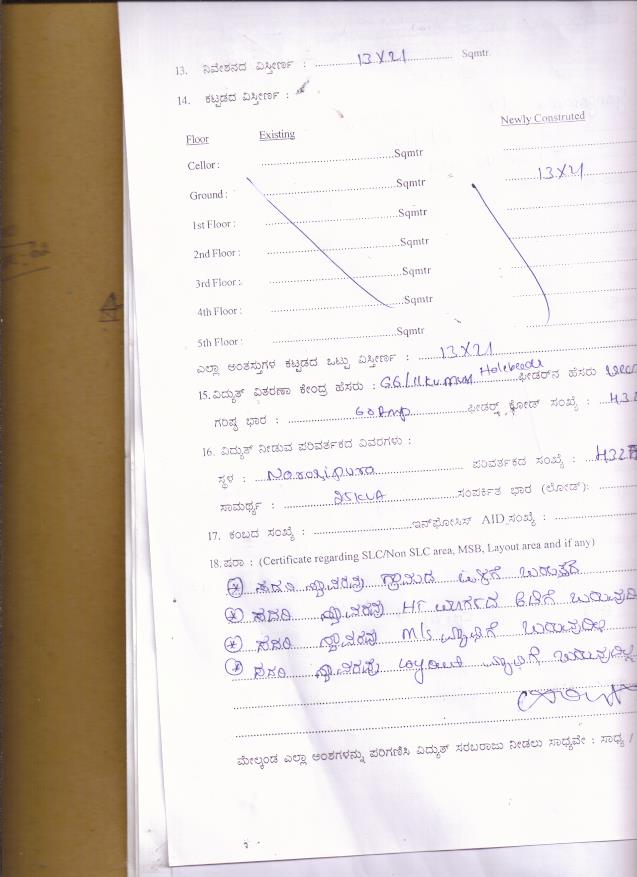 13. ನಿವೇಶನದ ವಿಸ್ತೀರ್ಣ : 13X21 Sqmtr.
14. ಕಟ್ಟಡದ ವಿಸ್ತೀರ್ಣ :
Floor Existing Newly Construted
Cellor : Sqmtr
Ground : Sqmtr 13X21
1st Floor : Sqmtr
2nd Floor : Sqmtr
3rd Floor : Sqmtr
4th Floor : Sqmtr
5th Floor : Sqmtr
ಎಲ್ಲಾ ಅಂತಸ್ತುಗಳ ಕಟ್ಟಡದ ಒಟ್ಟು ವಿಸ್ತೀರ್ಣ : 13X21
15. ವಿದ್ಯುತ್ ವಿತರಣಾ ಕೇಂದ್ರ ಹೆಸರು : Halebeedu ಫೀಡರ್‌ನ ಹೆಸರು
ಗರಿಷ್ಠ ಭಾರ : 60Amp ಫೀಡರ್ಸ್ ಕೋಡ್ ಸಂಖ್ಯೆ :
16. ವಿದ್ಯುತ್ ನೀಡುವ ಪರಿವರ್ತಕದ ವಿವರಗಳು :
ಸ್ಥಳ : Narasipura ಪರಿವರ್ತಕದ ಸಂಖ್ಯೆ :
ಸಾಮರ್ಥ್ಯ : 25KVA ಸಂಪರ್ಕಿತ ಭಾರ (ಲೋಡ್):
17. ಕಂಬದ ಸಂಖ್ಯೆ : ಇನ್‌ಫೋಸಿಸ್ AID ಸಂಖ್ಯೆ :
18. ಷರಾ : (Certificate regarding SLC/Non SLC area, MSB, Layout area and if any)
ಸದರಿ ಸ್ಥಾವರವು ಗ್ರಾಮದ ಒಳಗೆ ಬರುತ್ತದೆ
ಸದರಿ ಸ್ಥಾವರವು HT ಮಾರ್ಗದ ಕೆಳಗೆ ಬರುವುದಿ
ಸದರಿ ಸ್ಥಾವರವು M/s ವ್ಯಾಪ್ತಿಗೆ ಬರುವುದಿಲ್ಲ
ಸದರಿ ಸ್ಥಾವರವು layout ವ್ಯಾಪ್ತಿಗೆ ಬರುವುದಿಲ್ಲ
ಮೇಲ್ಕಂಡ ಎಲ್ಲಾ ಅಂಶಗಳನ್ನು ಪರಿಗಣಿಸಿ ವಿದ್ಯುತ್ ಸರಬರಾಜು ನೀಡಲು ಸಾಧ್ಯವೇ : ಸಾಧ್ಯ /